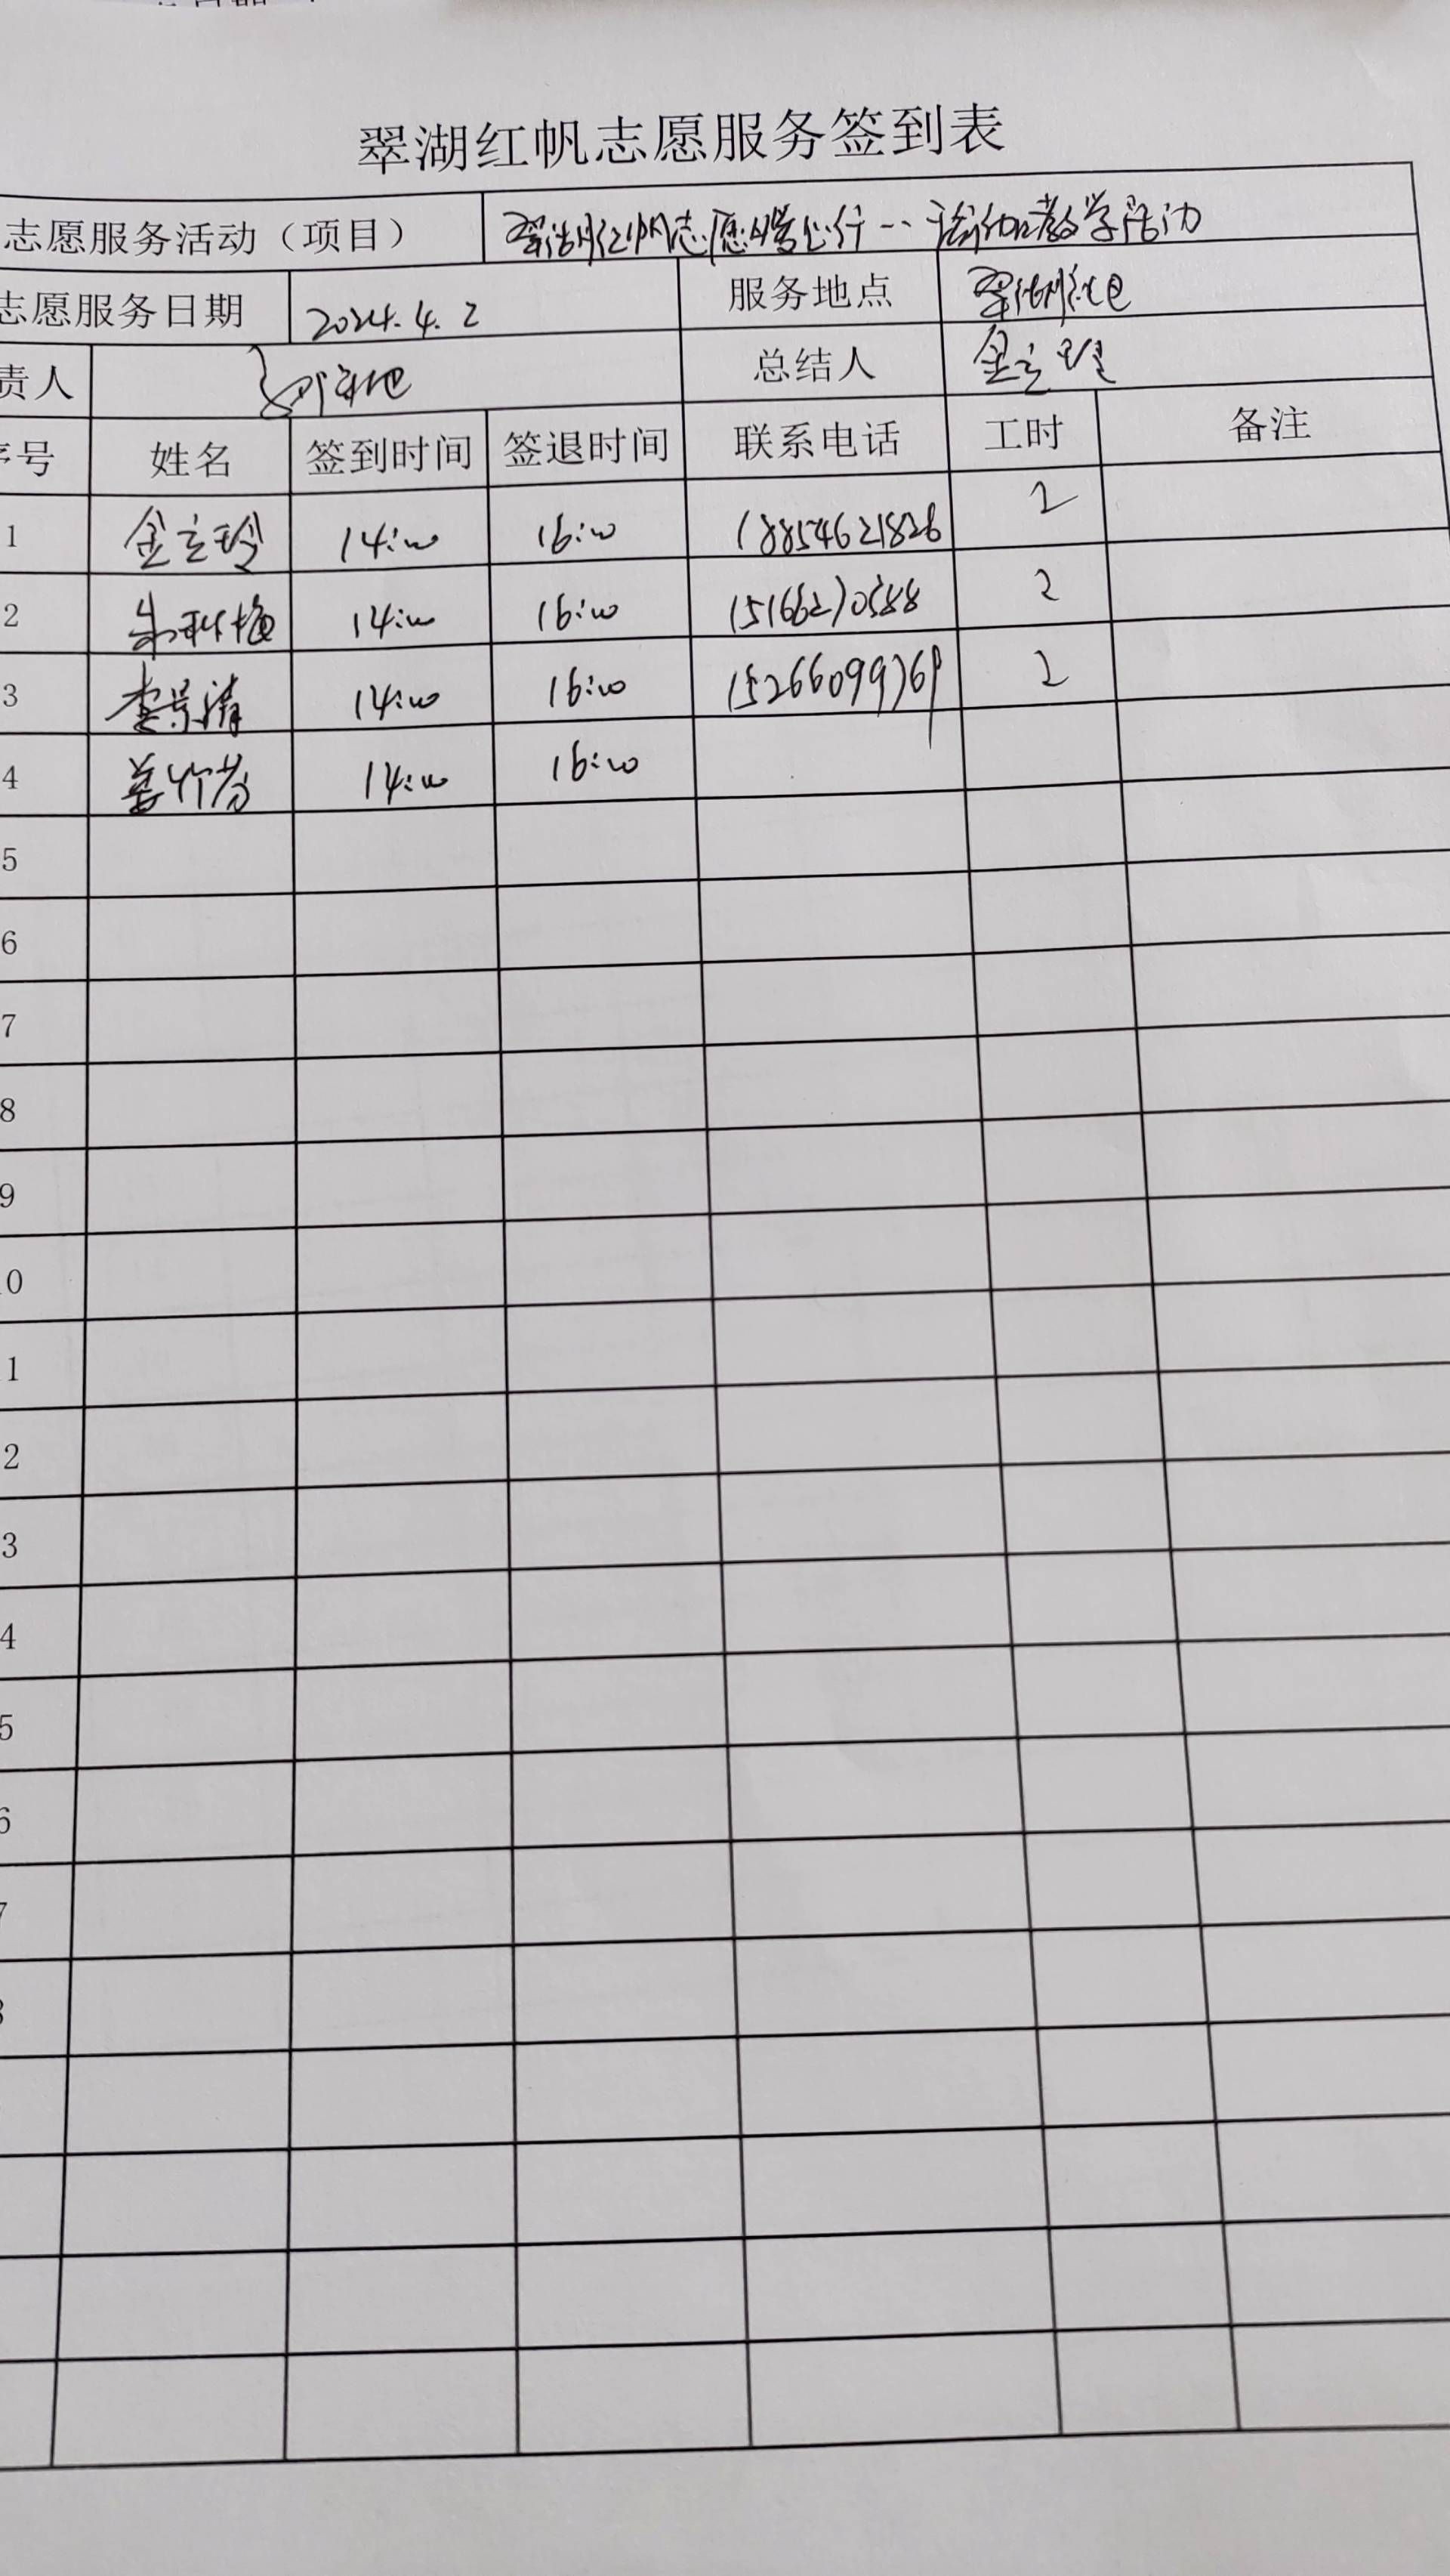 翠湖红帆志愿服务签到表
志愿服务活动（项目） 翠湖红帆志愿暖心行--瑜伽教学活动
志愿服务日期 2024.4.2 服务地点 翠湖社区
责人 总结人 金立玲
序号 姓名 签到时间 签退时间 联系电话 工时 备注
1 金立玲 14:00 16:00 18854621826 2
2 14:00 16:00 15166270588 2
3 李景清 14:00 16:00 15266099769 2
4 姜竹芳 14:00 16:00
5
6
7
8
9
0
1
2
3
4
5
6
7
8